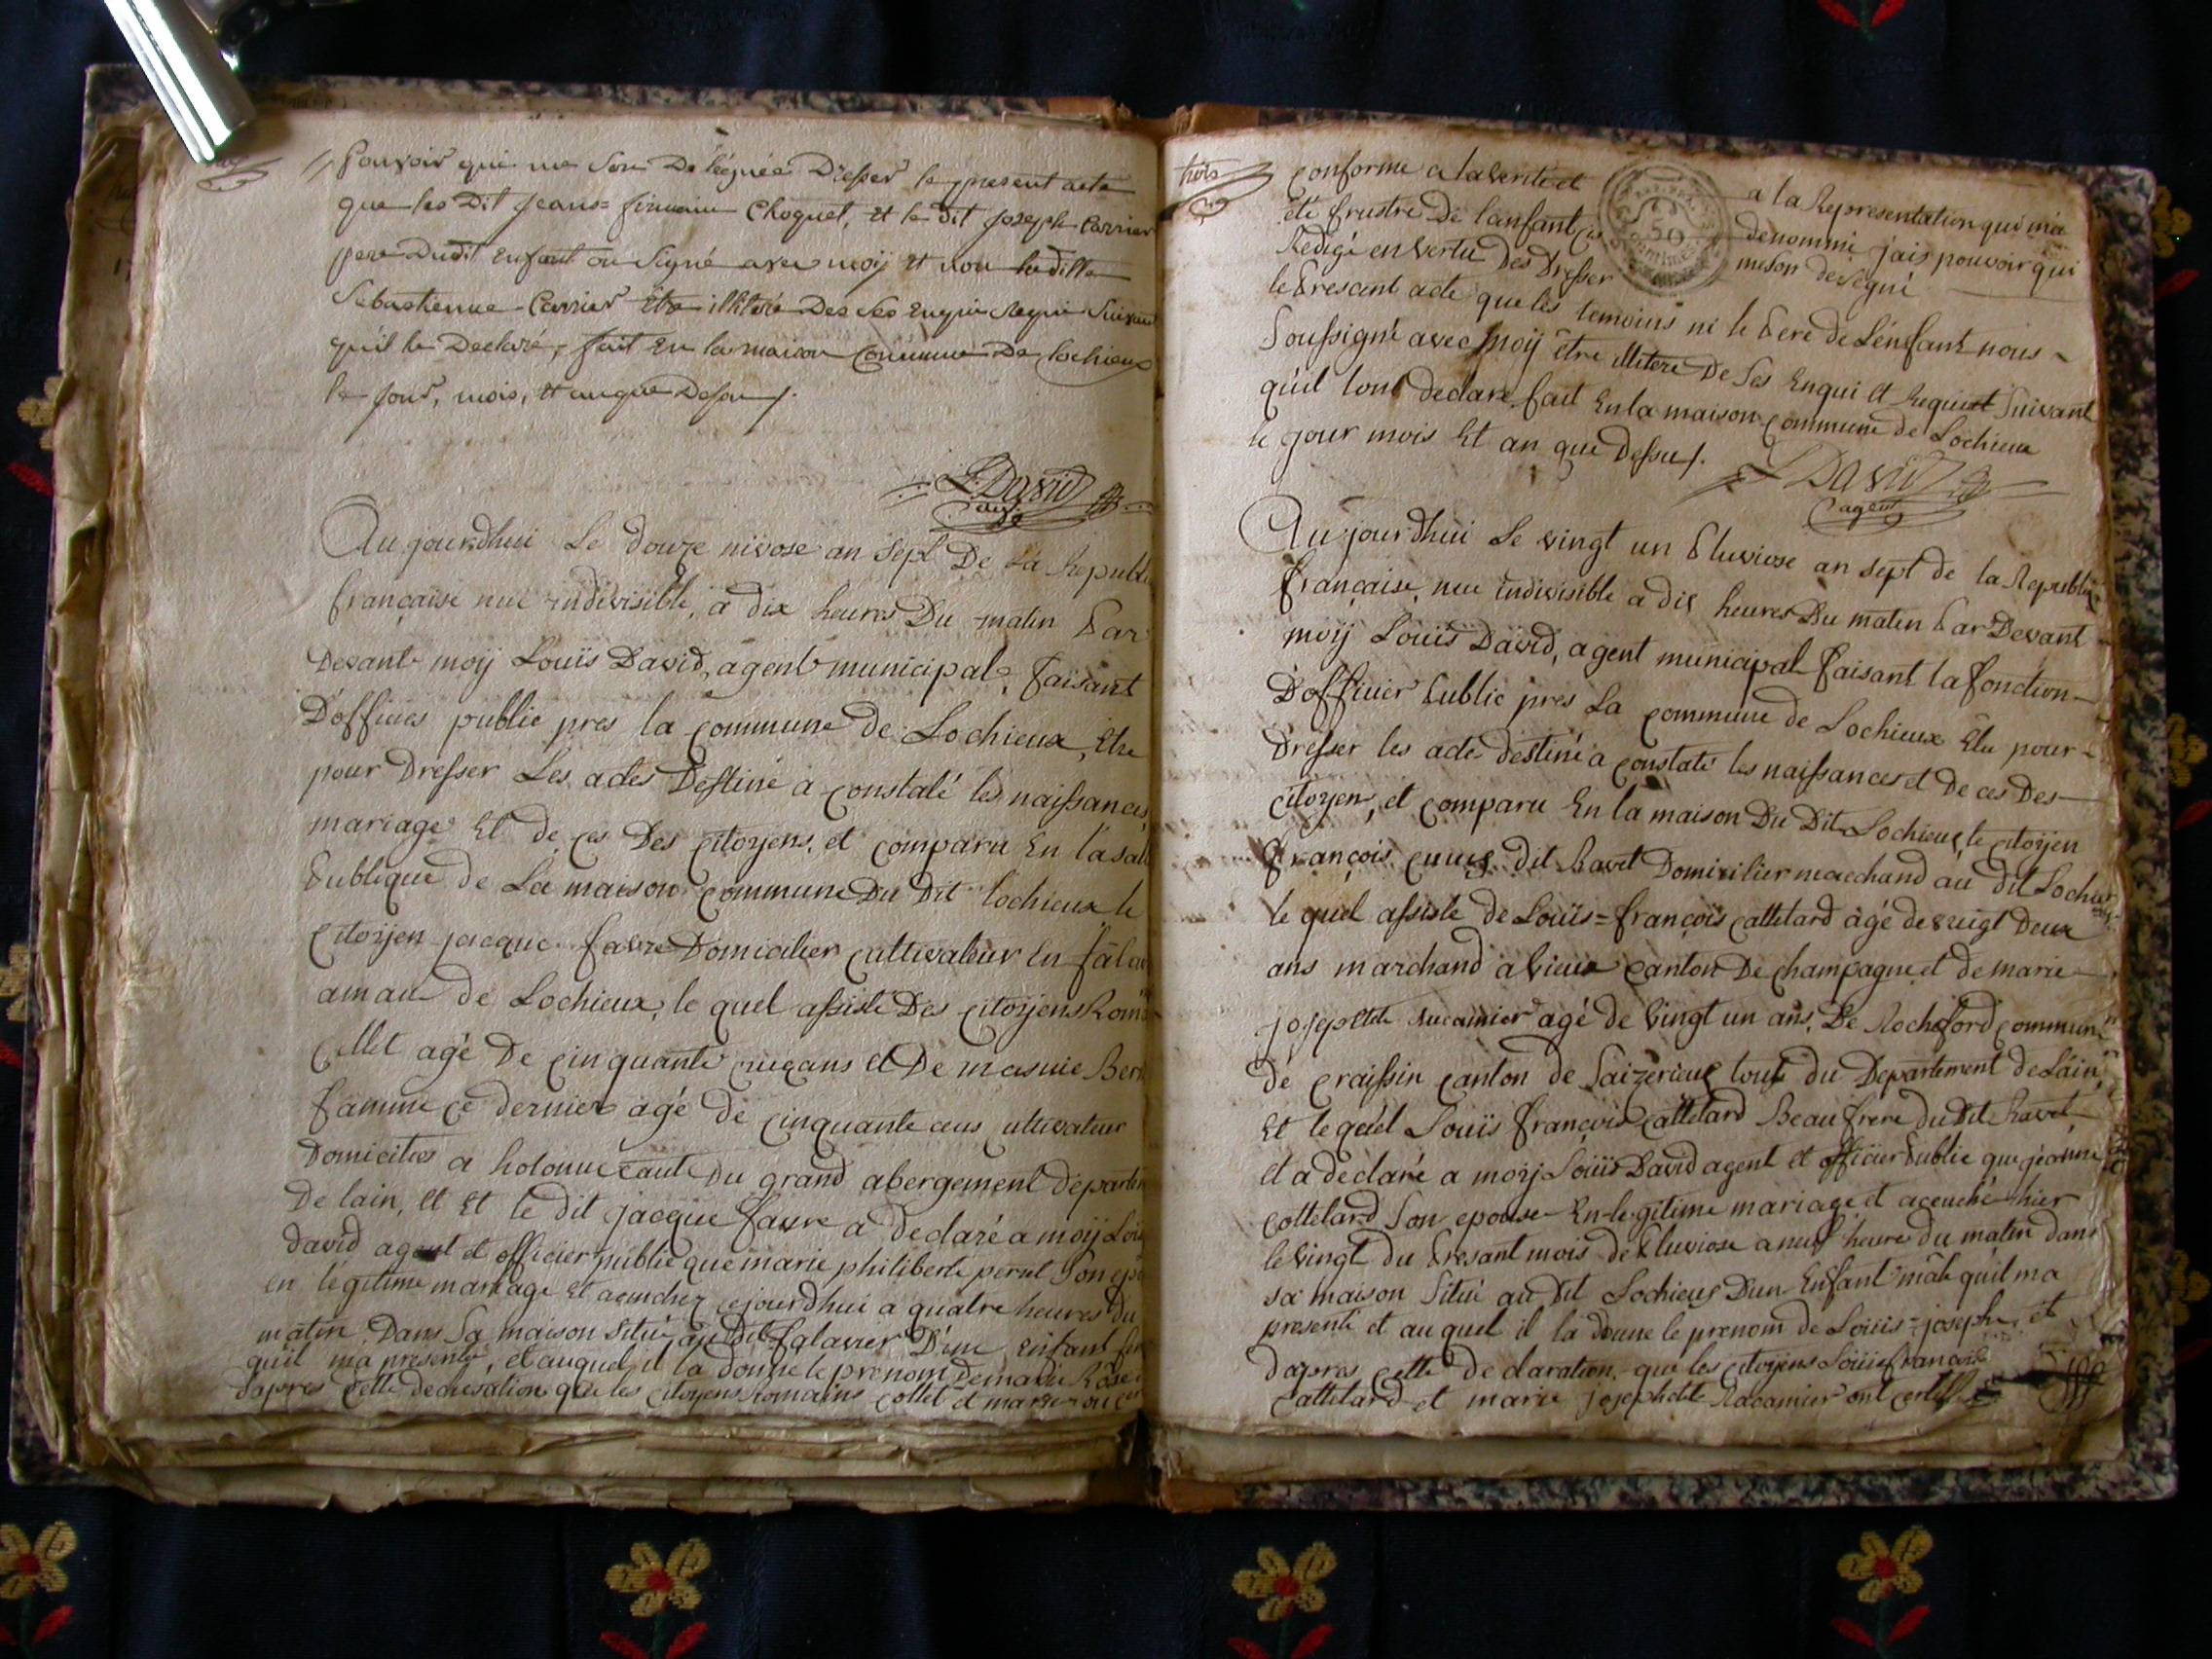 pouvoir qui me son Deléguée Dresser le present acte
que les Dit Jeans= Choquet, et le dit Joseph Carrier
pere Dudit Enfant on Signé avec moÿ et non laditte
Sebastienne Carrier Etre illitéré Des Ses Enquie Requie Suivant
qu'il la Declaré, fait En la maison Commune De lochieux
le jour, mois, et an que Dessus /.
L. David
agt
Aujourdhui Le douze nivose an sept De La Republi
française une indivisible, a dix heures Du matin Par
Devant moÿ Louïs David, agent municipal, faisant
D'officies public pres la Commune de Lochieux, Etre
pour Dresser Les actes Destiné a Constaté les naissances,
mariage Et de ces Des Citoÿens, et Comparu En la sale
Publique de La maison Commune Du Dit lochieux le
Citoÿen jacque favre Domicilier Cultivateur En fala
amau de Lochieux, le quel assisté Des Citoÿens Roma
Collet agé De Cinquante ans Et De Ber
famme Ce dernier agé de Cinquante ans
Domicilies a hotonne Du grand abergement départem
De lain, Et Et le dit jacque favre a declaré a moÿ Loui
david agent et officier publie que marie philiberte perret Son epo
en légitime mariage Et acouchez cejourdhui a quatre heures du
matin Dans Sa maison Situé, au Dit falavier D'une Enfant fem
quil ma presenté, et auquel il la donne le prenom De marie Rose
dapres Cette declaration que les Citoÿens Romains Collet et
trois
Conforme a la verité et a la Representation qui ma
été frustré De lanfant denommé jais pouvoir qui
Redigé en Vertu des Dresser meson deLegué
50
le Present acte que les temoins ni le Pere de L'énfant nous
Soussigné avec moÿ être illiteré De Ses Enqui et Requiet Suivant
qu'il lont declaré fait En la maison Commune de Lochieux
le jour mois Et an que Dessus /.
L David
agent
Aujourdhui Le vingt un Pluviose an sept de la Republi
française, une indivisible a dix heures Du matin Par Devant
moÿ Louïs David, agent municipal faisant la fonction
D'officier Public pres La Commune de Lochieux Elu pour
Dresser les acte destiné a Constaté les naissances et De ces Des
Citoÿens, et Comparu En la maison Du Dit Lochieux le Citoÿen
François dit Ravet Domicilier marchand au dit Lochieux
le quel assisté de Louïs=François Cattelard agé de vingt Deux
ans marchand a Vieux Canton De Champagne et de marie
josephete agé de Vingt un ans, De Rochford Commune
de Craissin Canton de Saizerieux tous du Departement de Lain,
Et le quel Louïs François Cattelard Beau frere du Dit Ravet
et a declaré a moÿ Louïs David agent et officier Public que jeanne
Cottelard Son epouse En legitime mariage et acouché hier
le Vingt du Presant mois de Pluviose a neuf heure du matin dans
sa maison Situé au Dit Lochieux Dun Enfant mâle quil ma
presenté et au quel il la doune le prenom de Louis=joseph, et
dapres Cette De claration, que les Citoÿens Louis françois
Cattelard et marie josephete Racamier ont Certiffié